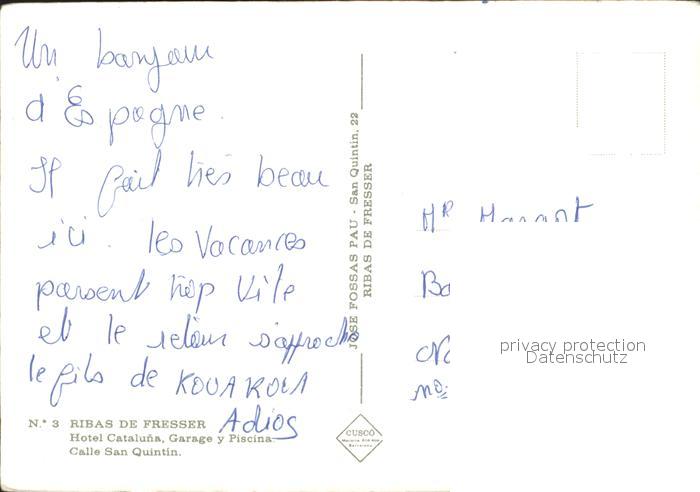 Un bonjour
d'Espagne.
Il fait très beau
ici. les Vacances
passent trop Vite
et le retour s'approche
le fils de KOUAKOUA
Adios
N.° 3 RIBAS DE FRESSER
Hotel Cataluña, Garage y Piscina
Calle San Quintín.
JOSE FOSSAS PAU - San Quintín, 22
RIBAS DE FRESSER
CUSCÓ
Barcelona
Mr
privacy protection
Datenschutz